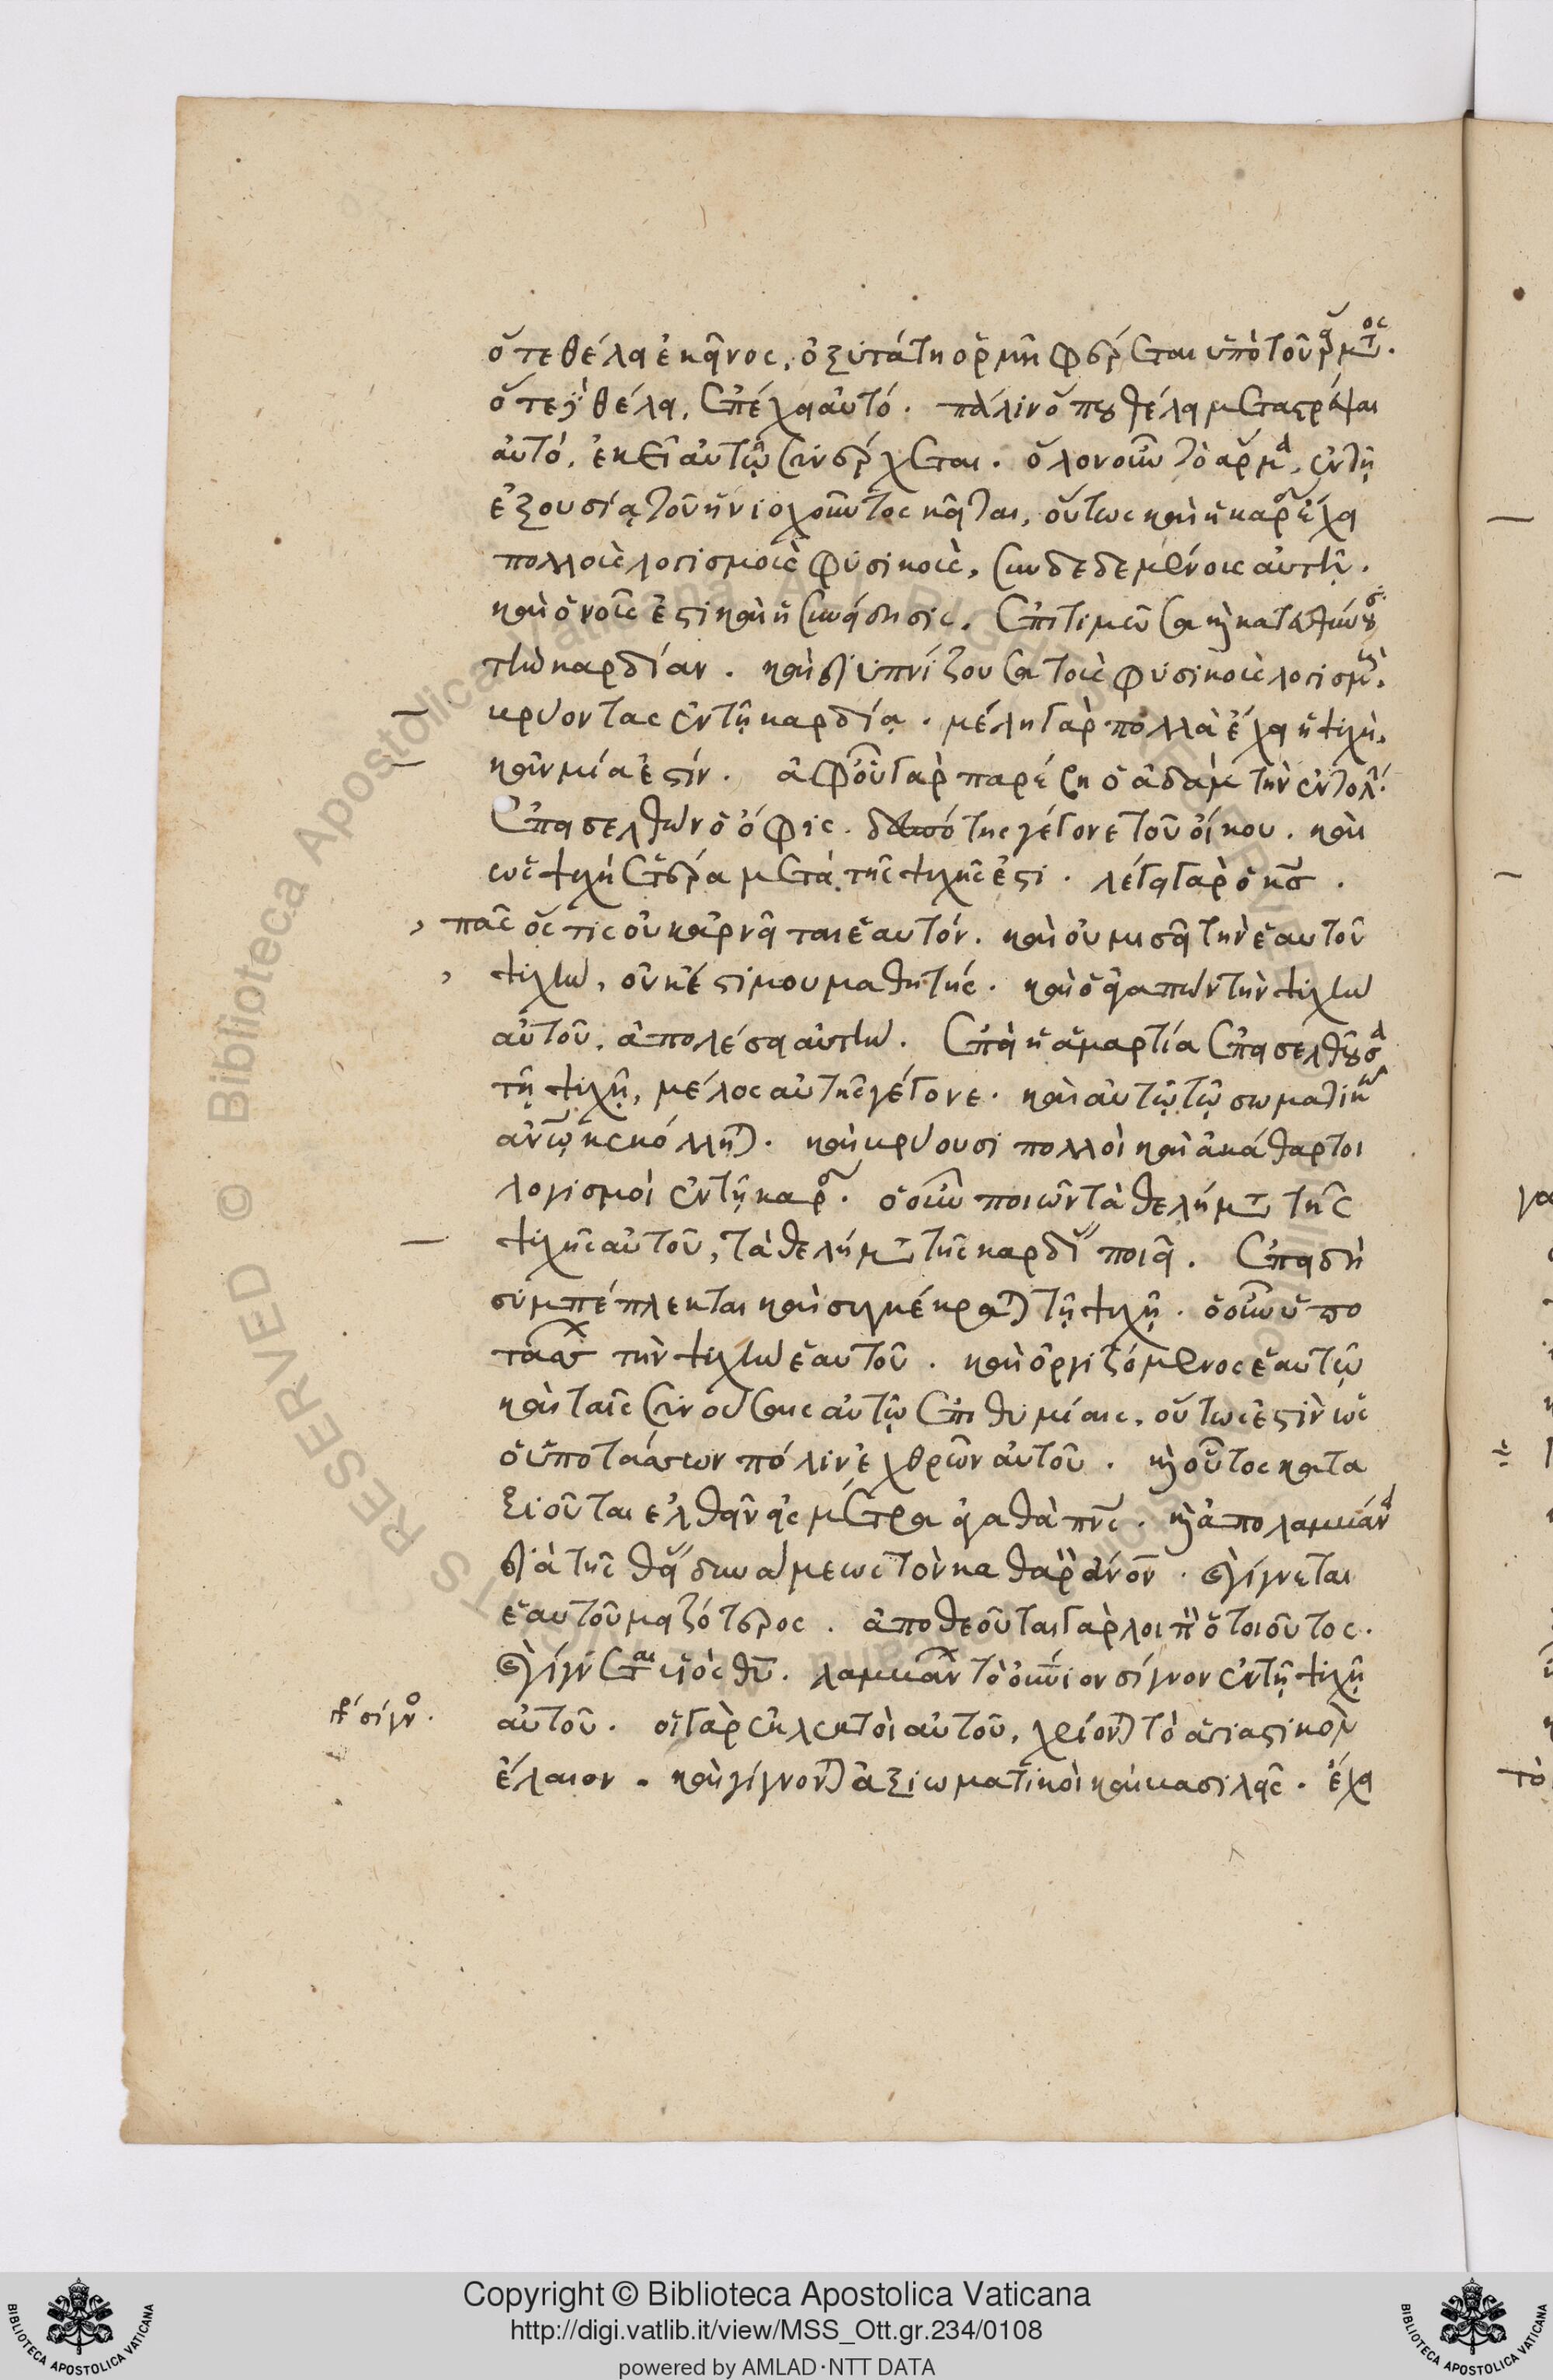 ὅτε θέλει ἐκεῖνος, ὀξυτάτη ὁρμῆ φέρεται ὑπὸ τοῦ ἅρματος.
ὅτε θέλει, ἐπέχει αὐτό. πάλιν ὅπου θέλει μεταστρέψαι
αὐτό, ἐκεῖ αὐτῷ συνέρχεται. ὅλον οὖν τὸ ἅρμα, ἐν τῇ
ἐξουσίᾳ τοῦ ἡνιοχοῦντος κεῖται, οὕτως καὶ ἡ καρδία ἔχει
πολλοῖς λογισμοῖς φυσικοῖς, συνδεδεμένοις αὐτῇ.
καὶ ὁ νοῦς ἐστι καὶ ἡ συνείδησις, ἐπιτιμῶσα καὶ κατευθύνουσα
τὴν καρδίαν. καὶ διυπνίζουσα τοὺς φυσικοὺς λογισμοὺς
βρύοντας ἐν τῇ καρδίᾳ. μέλη γὰρ πολλὰ ἔχει ἡ ψυχὴ,
κἂν μία ἐστίν. ἀφ' οὗ γὰρ παρέβη ὁ ἀδὰμ τὴν ἐντολὴν
ἐπεισελθὼν ὁ ὄφις. δεσπότης γέγονε τοῦ οἴκου. καὶ
ὡς ψυχὴ ἑτέρα μετὰ τῆς ψυχῆς ἐστι. λέγει γὰρ ὁ κς.
πᾶς ὅστις οὐκ ἀρνεῖται ἑαυτόν. καὶ οὐ μισεῖ τὴν ἑαυτοῦ
ψυχὴν, οὐκ ἔστι μου μαθητής. καὶ ὁ ἀγαπῶν τὴν ψυχὴν
αὐτοῦ, ἀπολέσει αὐτήν. ἐπεὶ ἡ ἁμαρτία ἐπεισελθοῦσα
τῇ ψυχῇ, μέλος αὐτῆς γέγονε. καὶ αὐτῷ τῷ σωματικῷ
ανῳ κεκόλληται. καὶ βρύουσι πολλοὶ καὶ ἀκάθαρτοι
λογισμοὶ ἐν τῇ καρδίᾳ. ὁ οὖν ποιῶν τὰ θελήματα τῆς
ψυχῆς αὐτοῦ, τὰ θελήματα τῆς καρδίας ποιεῖ. ἐπειδὴ
συμπέπλεκται καὶ συγκέκραται τῇ ψυχῇ. ὁ οὖν ὑπο
τάσσων τὴν ψυχὴν ἑαυτοῦ. καὶ ὀργιζόμενος ἑαυτῷ
καὶ ταῖς συνούσαις αὐτῷ ἐπιθυμίαις, οὕτως ἐστὶν ὡς
ὁ ὑποτάσσων πόλιν ἐχθρῶν αὐτοῦ. καὶ οὗτος κατα
ξιοῦται ἐλθεῖν εἰς μέτρα ἀγαθὰ πνς. καὶ ἀπολαμβάνει
διὰ τῆς θείας δυνάμεως τὸν καθαρὸν ανον. καὶ γίγνεται
ἑαυτοῦ μειζότερος. ἀποθεοῦται γὰρ λοιπὸν ὁ τοιοῦτος.
καὶ γίγνεται υἱὸς θυ. λαμβάνων τὸ οὐνιον σίγνον ἐν τῇ ψυχῇ
αὐτοῦ. οἱ γὰρ ἐκλεκτοὶ αὐτοῦ, χρίονται τὸ ἁγιαστικὸν
ἔλαιον. καὶ γίγνονται ἀξιωματικοὶ καὶ βασιλεῖς. ἔχει
σίγνο.
Copyright © Biblioteca Apostolica Vaticana
http://digi.vatlib.it/view/MSS_Ott.gr.234/0108
powered by AMLAD·NTT DATA